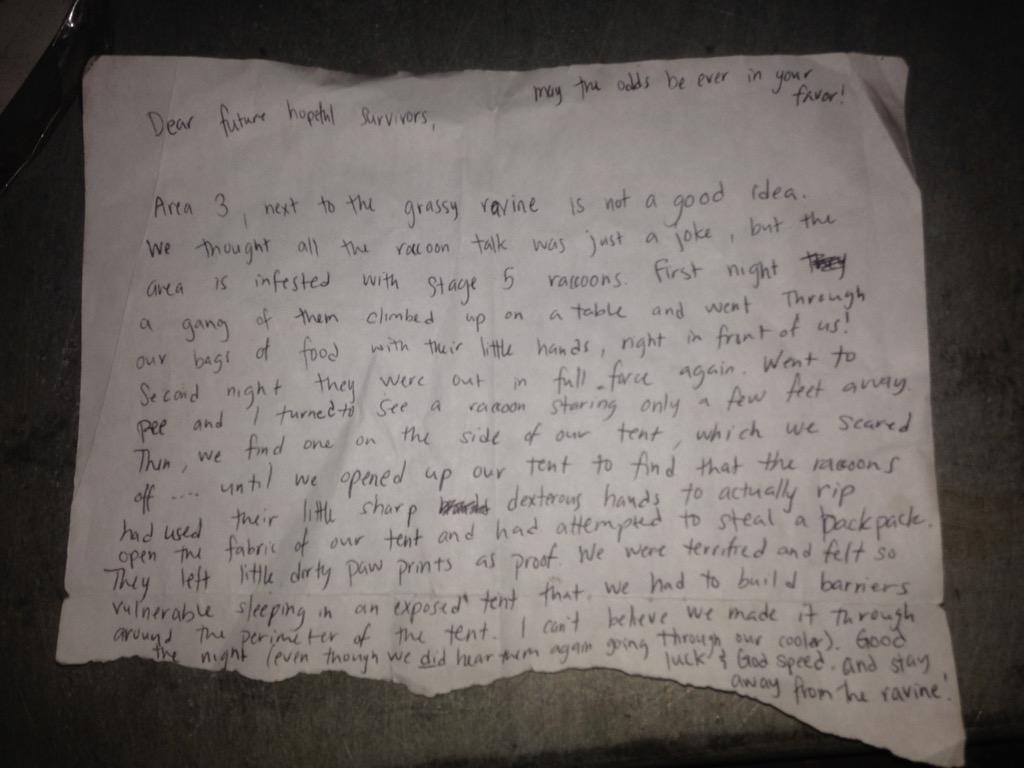 may the odds be ever in your
favor!
Dear future hopeful survivors,
Area 3, next to the grassy ravine is not a good idea.
We thought all the racoon talk was just a joke, but the
area is infested with stage 5 raccoons. First night
a gang of them climbed up on a table and went through
our bags of food with their little hands, right in front of us!
Second night they were out in full force again. Went to
pee and I turned to see a raccoon staring only a few feet away.
Then, we find one on the side of our tent, which we scared
off .... until we opened up our tent to find that the raccoons
had used their little sharp dexterous hands to actually rip
open the fabric of our tent and had attempted to steal a backpack.
They left little dirty paw prints as proof. We were terrified and felt so
vulnerable sleeping in an exposed tent that we had to build barriers
around the perimeter of the tent. I can't believe we made it through
the night (even though we did hear them again going through our cooler). Good
luck & God speed. and stay
away from the ravine!